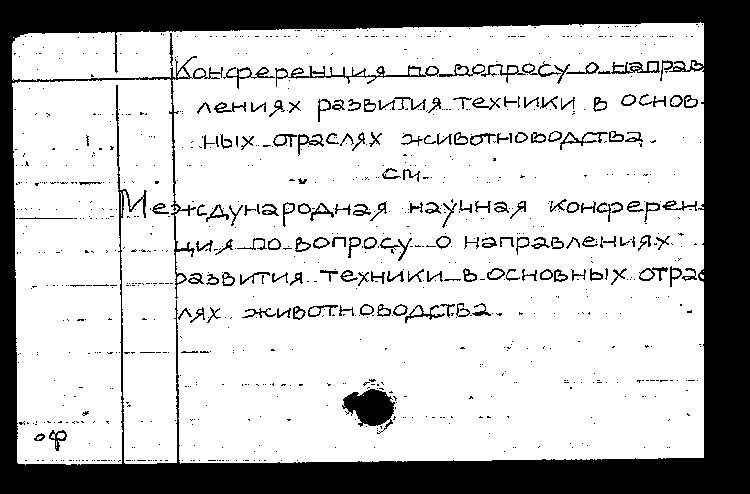 Конференция по вопросу о направ
лениях развития техники в основ-
ных отраслях животноводства.
см.
Международная научная конферен-
ция по вопросу о направлениях
развития техники в основных отрас
лях животноводства.
оф